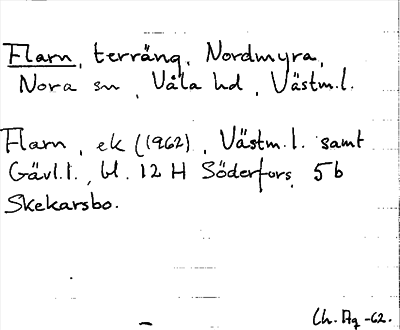 Flarn, terräng, Nordmyra,
Nora sn, Våla hd, Västm.l.
Flarn, ek (1962), Västm.l. samt
Gävl.l., bl. 12 H Söderfors, 5b
Skekarsbo.
Ch. Ag -62.